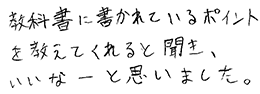 教科書に書かれているポイント
を教えてくれると聞き、
いいなーと思いました。